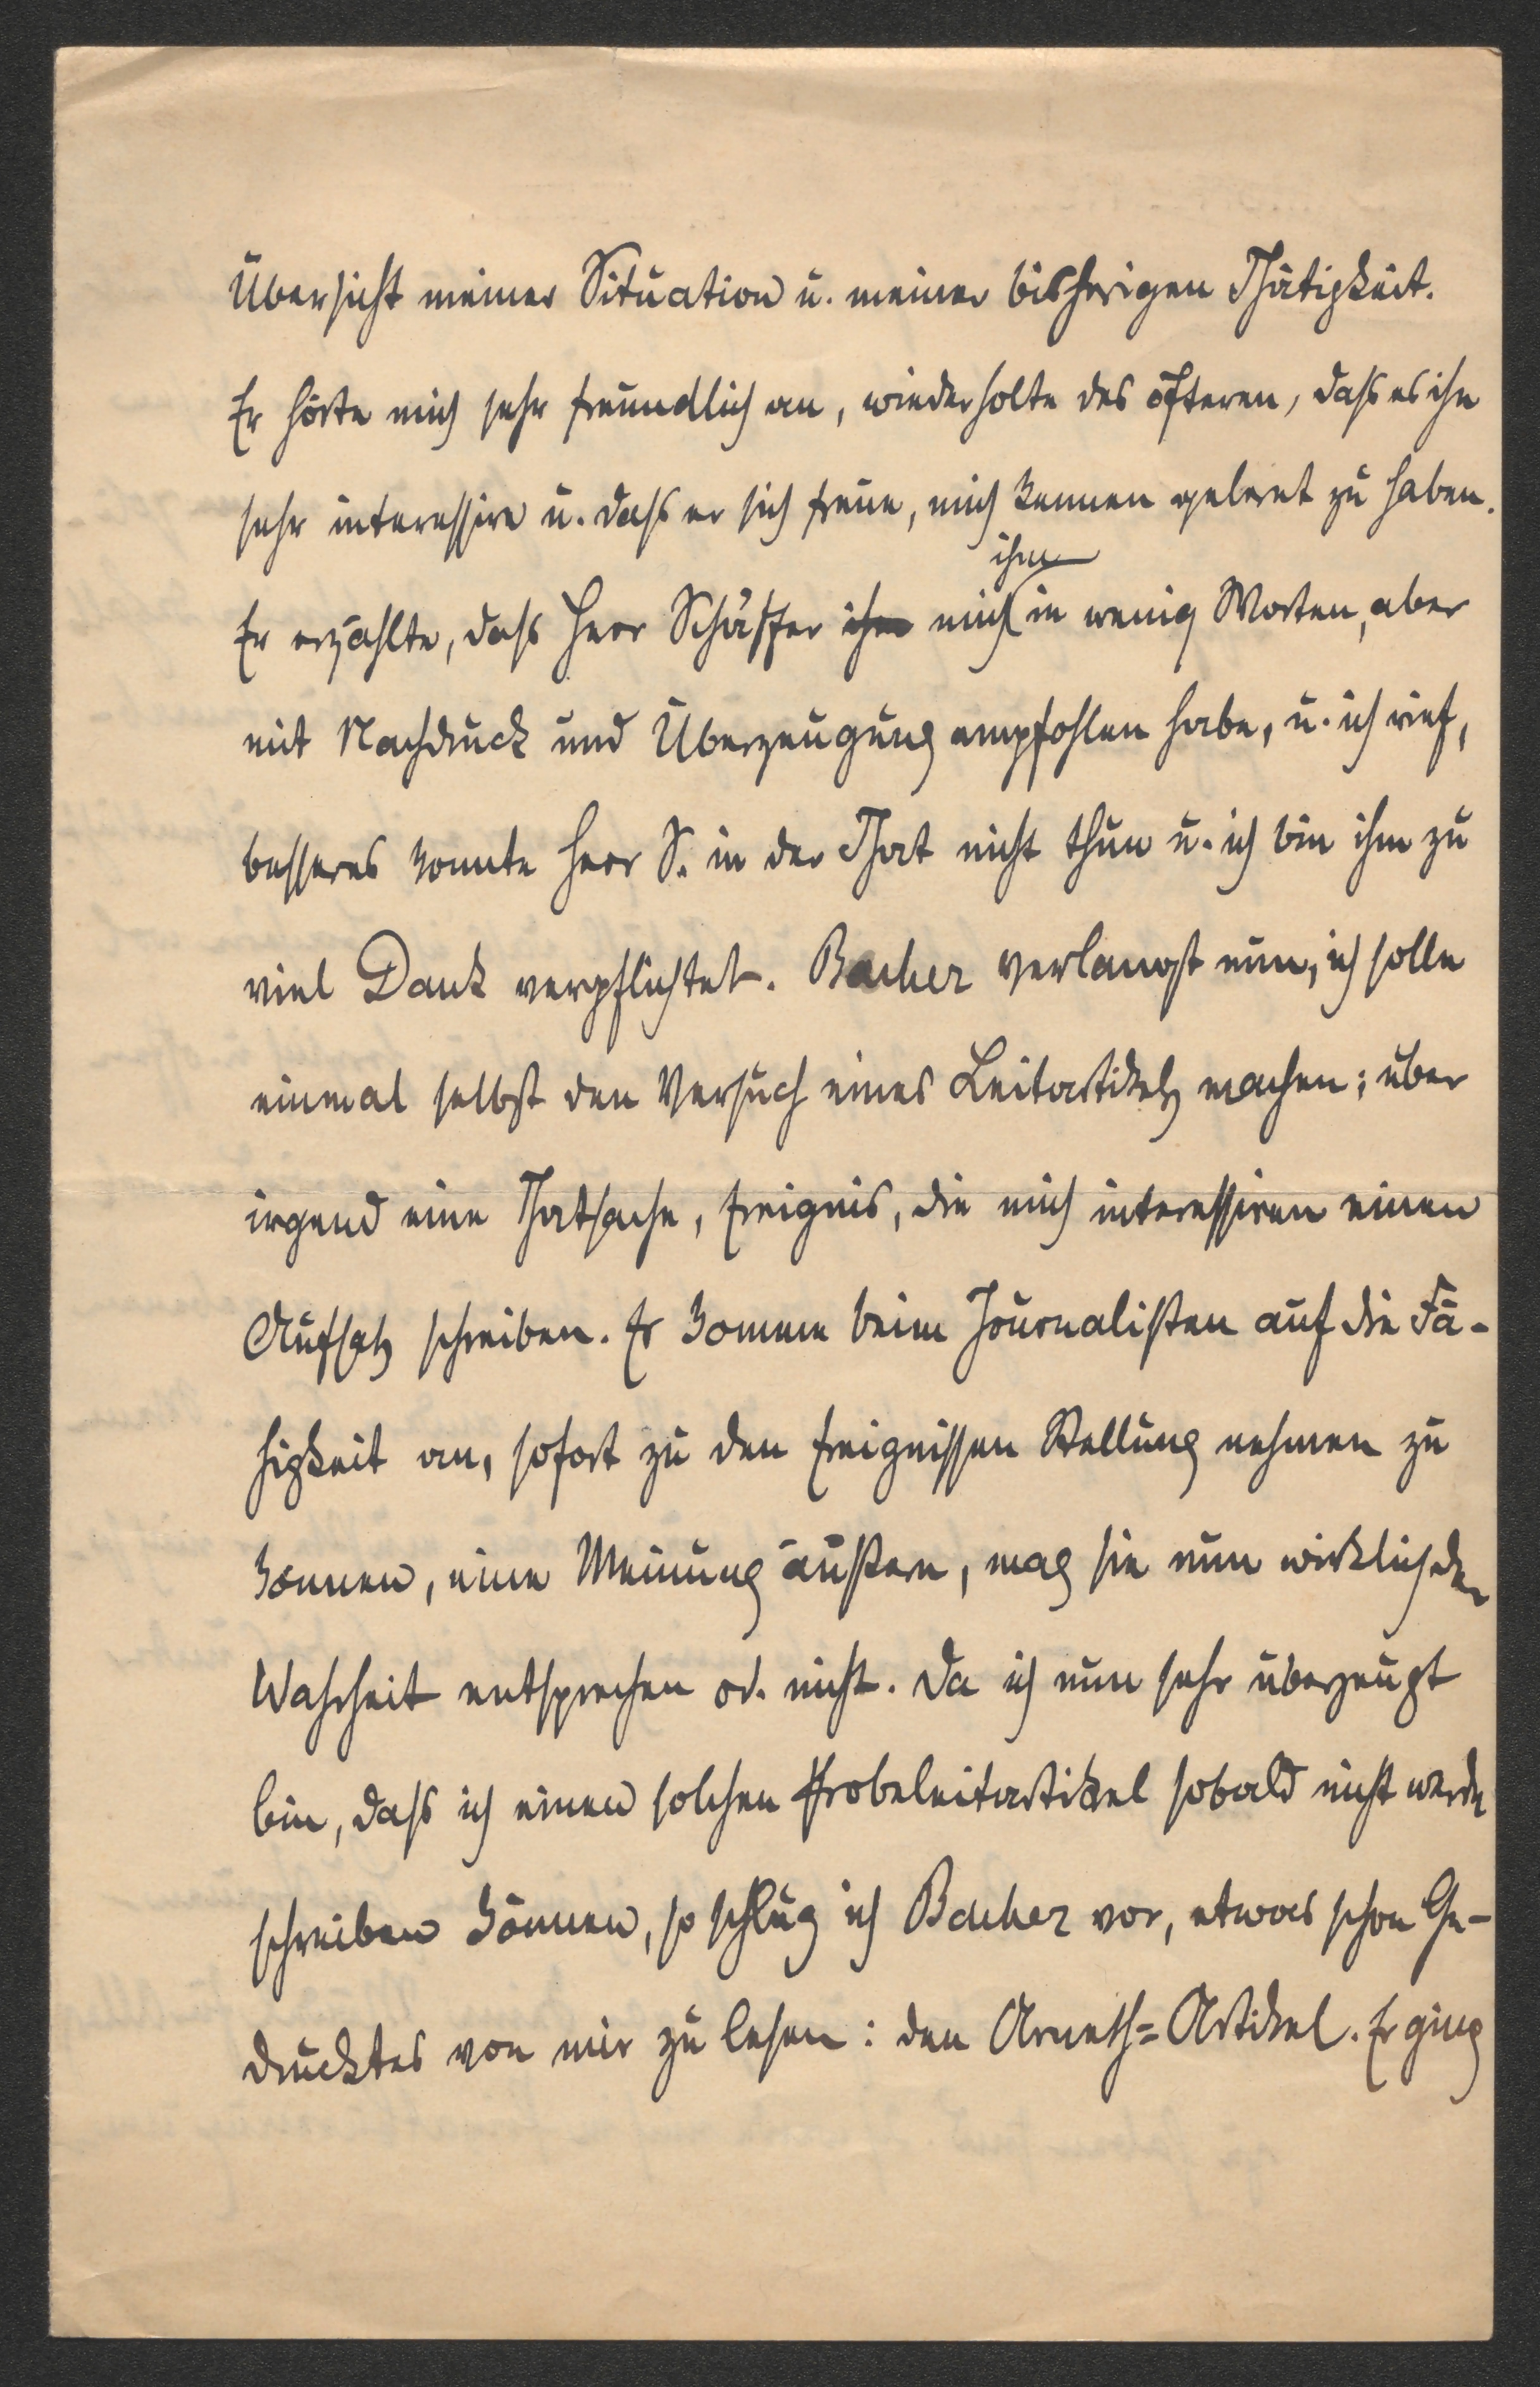 Übersicht meiner Situation u. meiner bisherigen Thätigkeit.
Er hörte mich sehr freundlich an, wiederholte des öfteren, dass es ihn
sehr interessire u. dass er sich freue, mich kennen gelernt zu haben.
ihm
Er erzählte, dass Herr Schäffer ihm mich in wenig Worten, aber
mit Nachdruck und Überzeugung empfohlen habe, u. ich rief,
besseres konnte Herr S. in der That nicht thun u. ich bin ihm zu
viel Dank verpflichtet. Bacher verlangt nun, ich solle
einmal selbst den Versuch eines Leitartikels machen; über
irgend eine Thatsache, Ereignis, die mich interessiren einen
Aufsatz schreiben. Es komme beim Journalisten auf die Fä-
higkeit an, sofort zu den Ereignissen Stellung nehmen zu
können, eine Meinung äußern, mag sie nun wirklich der
Wahrheit entsprechen od. nicht. Da ich nun sehr überzeugt
bin, dass ich einen solchen Probeleitartikel sobald nicht werde
schreiben können, so schlug ich Bacher vor, etwas schon Ge-
drucktes von mir zu lesen: den Arneth-Artikel. Er ging